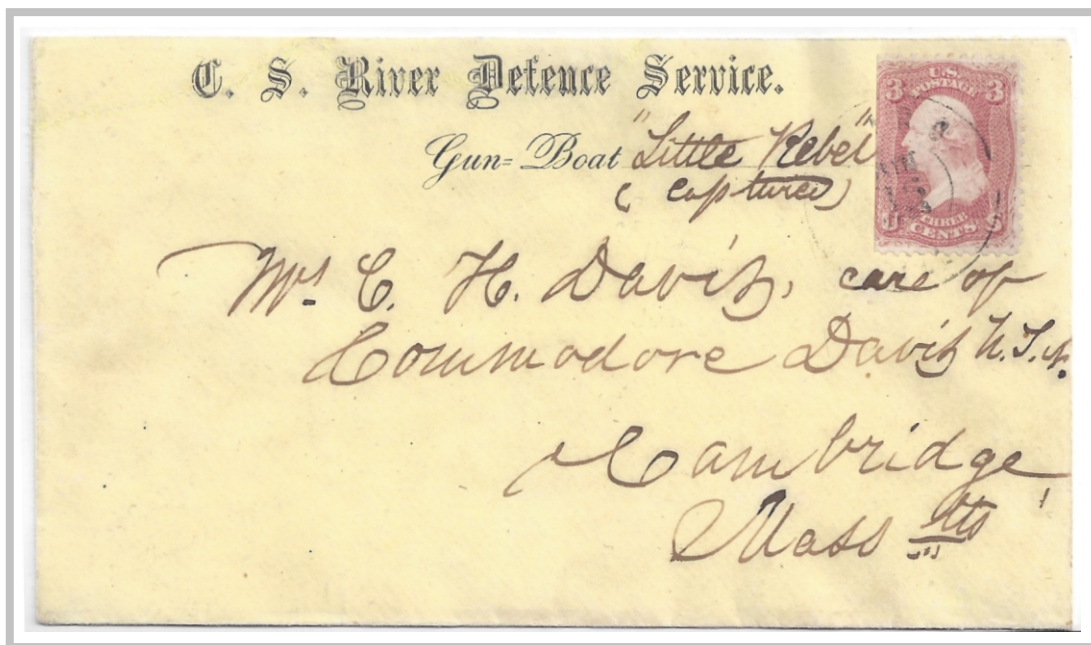 C. S. River Defence Service.
Gun=Boat "Little Rebel"
(captured)
3 U.S. POSTAGE 3
THREE CENTS
Mrs C. H. Davis, care of
Commodore Davis U.S.N.
Cambridge
Mass tts